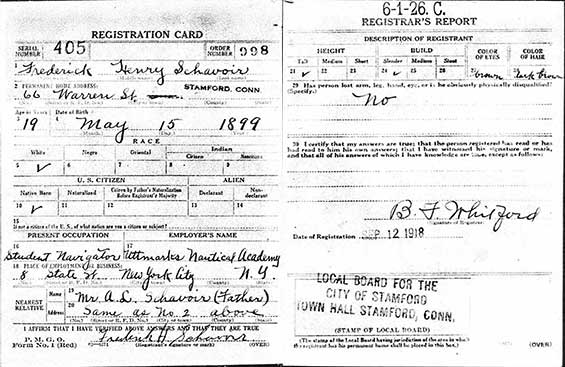 REGISTRATION CARD
SERIAL NUMBER 405 ORDER NUMBER 998
1 Frederick Henry Schavoir
2 PERMANENT HOME ADDRESS:
66 Warren St. STAMFORD, CONN.
Age in Years Date of Birth
3 19 4 May 15 1899
RACE
White Negro Oriental Indian
Citizen
5 ✓ 6 7 8 9
U. S. CITIZEN ALIEN
Native Born Naturalized Citizen by Father's Naturalization Before Registrant's Majority Declarant Non-declarant
10 ✓ 11 12 13 14
15
If not a citizen of the U. S., of what nation are you a citizen or subject?
PRESENT OCCUPATION EMPLOYER'S NAME
16 17
Student Navigator Uttmarks Nautical Academy
18 PLACE OF EMPLOYMENT OR BUSINESS:
8 State St. New York City N. Y.
NEAREST RELATIVE
Name 19 Mr. A. L. Schavoir (Father)
Address 20 Same as No. 2 above
I AFFIRM THAT I HAVE VERIFIED ABOVE ANSWERS AND THAT THEY ARE TRUE
P. M. G. O.
Form No. 1 (Red) Frederick H. Schavoir
(Registrant's signature or mark) (OVER)
6-1-26. C.
REGISTRAR'S REPORT
DESCRIPTION OF REGISTRANT
HEIGHT BUILD COLOR OF EYES COLOR OF HAIR
Tall Medium Short Slender Medium Stout
21 ✓ 22 23 24 ✓ 25 26 27 Brown 28 Dark brown
29 Has person lost arm, leg, hand, eye, or is he obviously physically disqualified?
(Specify.)
No
30 I certify that my answers are true; that the person registered has read or has had read to him his own answers; that I have witnessed his signature or mark, and that all of his answers of which I have knowledge are true, except as follows:
B. F. Whitford
(Signature of Registrar)
Date of Registration SEP 12 1918
LOCAL BOARD FOR THE
CITY OF STAMFORD
TOWN HALL STAMFORD, CONN.
(STAMP OF LOCAL BOARD)
(The stamp of the Local Board having jurisdiction of the area in which the registrant has his permanent home shall be placed in this box.)
(OVER)